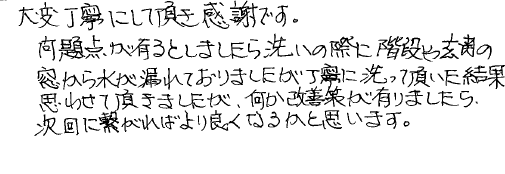 大変丁寧にして頂き感謝です。
問題点が有るとしましたら洗いの際に階段や玄関の
窓から水が漏れておりましたが丁寧に洗って頂いた結果
思わせて頂きましたが、何か改善策が有りましたら、
次回に繋がればより良くなるかと思います。